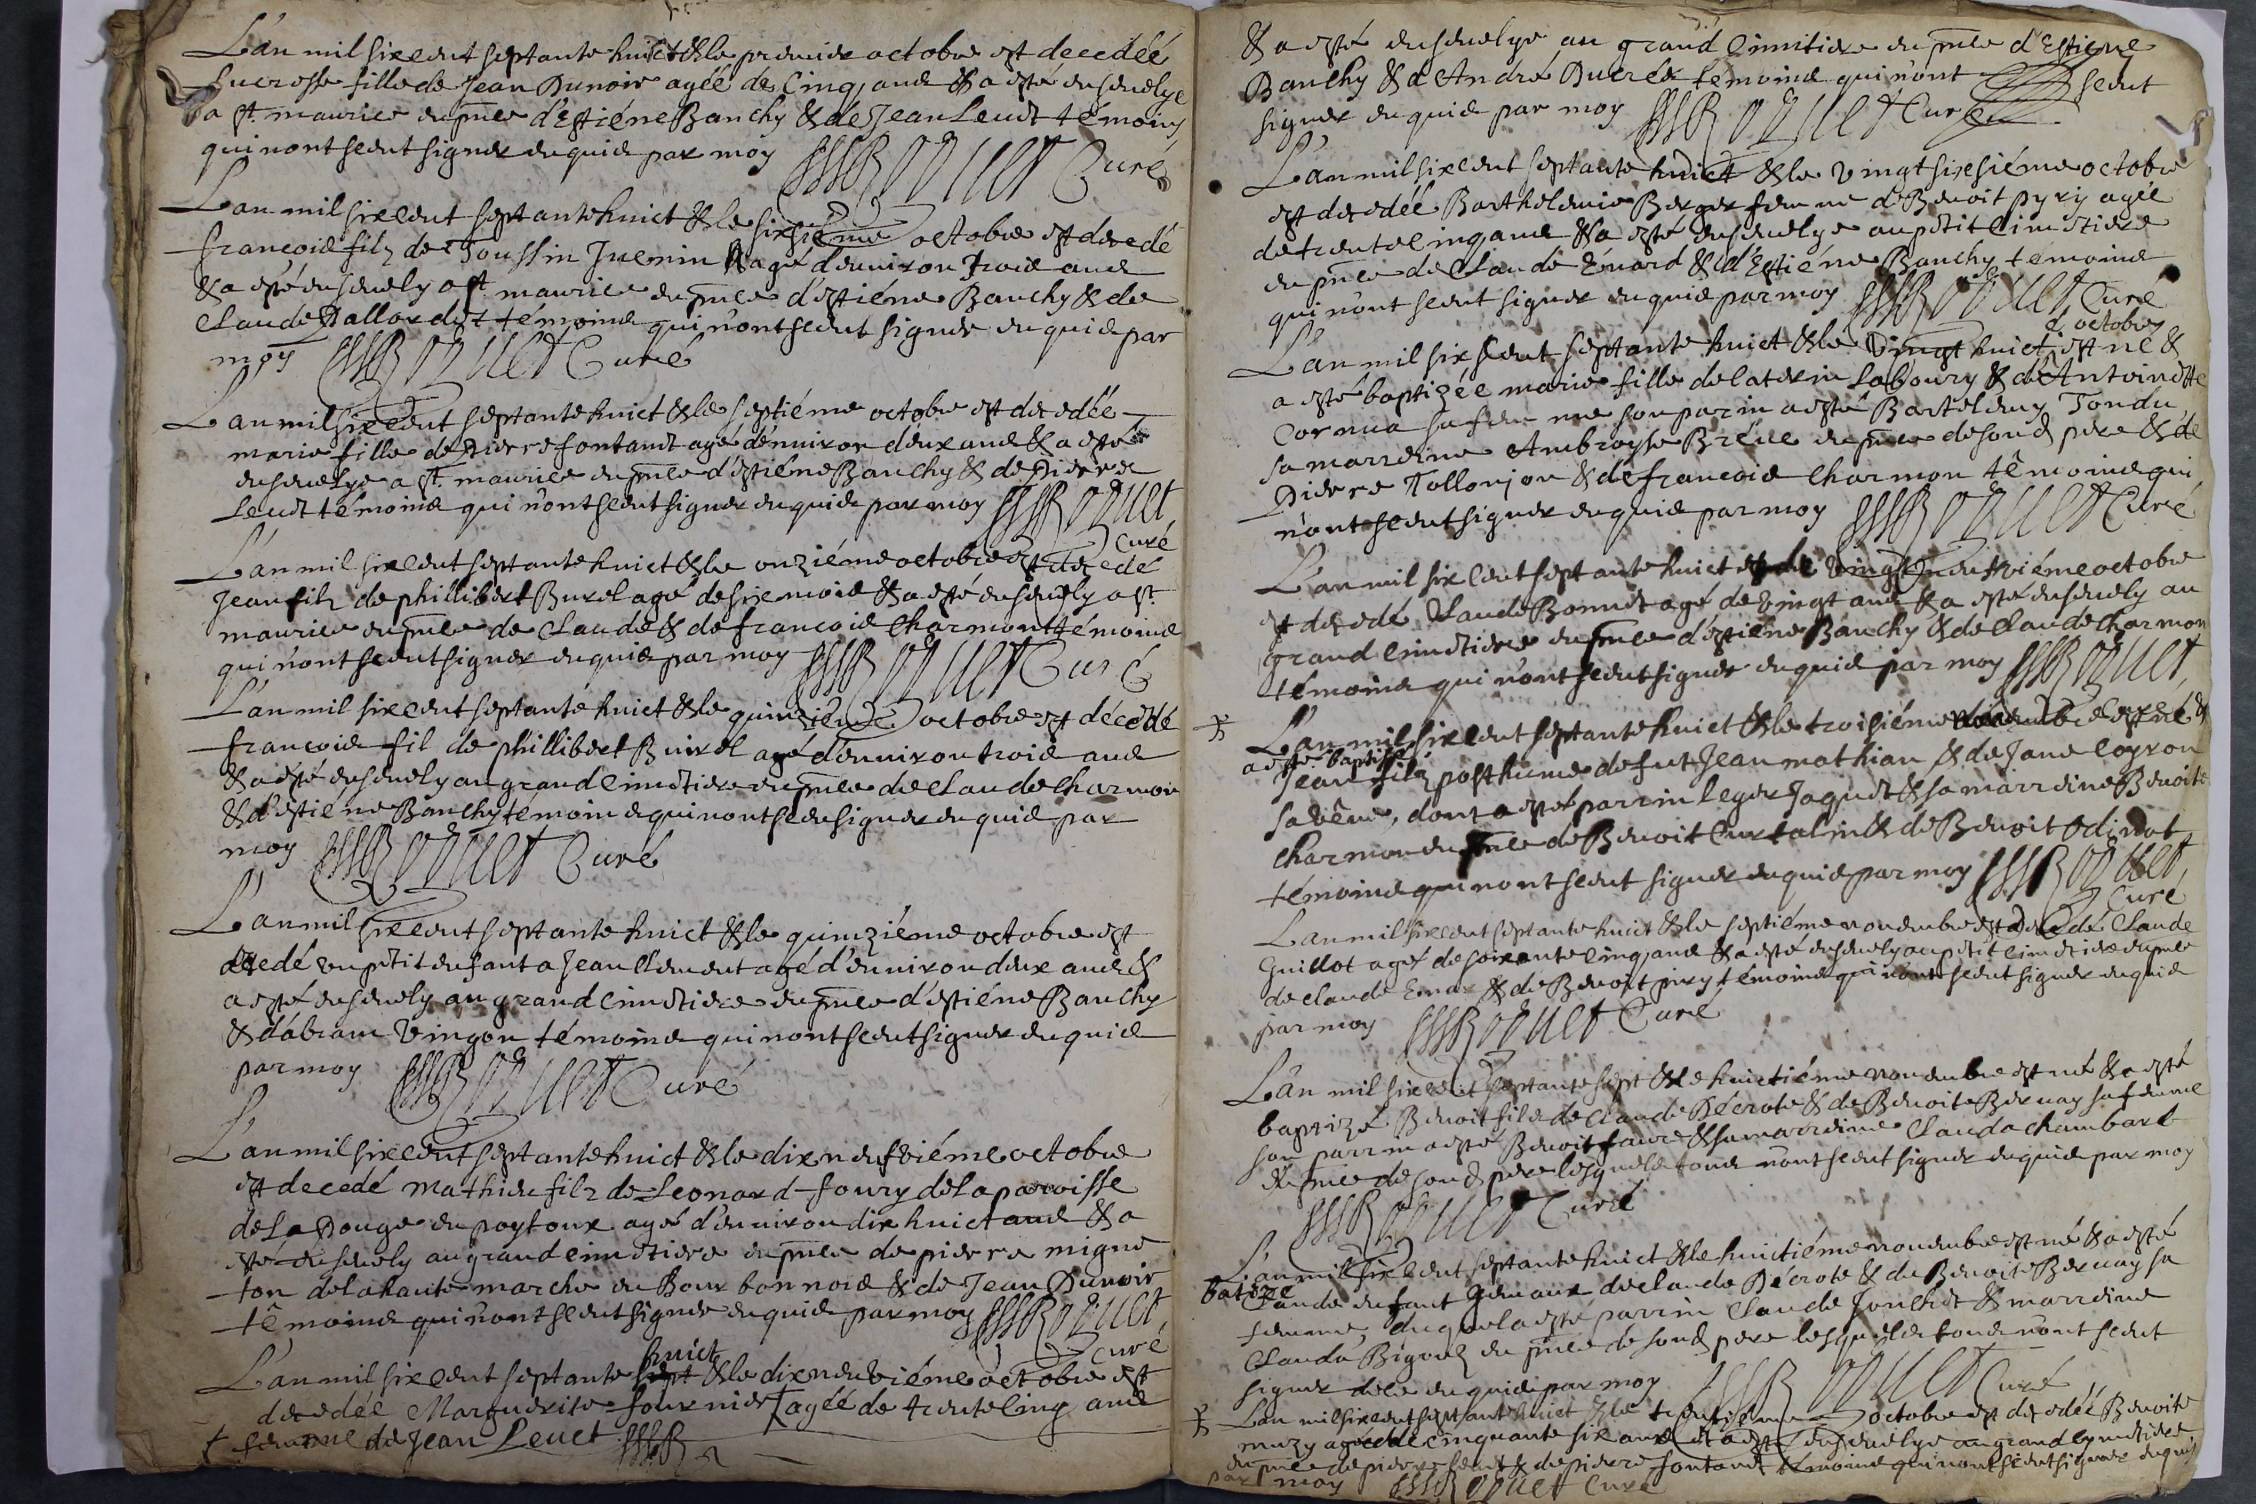 L'an mil six cent septante huict & le premier octobre est decedéé
Lucresse fille de Jean Dunoir agéé de Cinq ans & a esté ensevelye
a st. maurice en pñce d'Estiéne Banchy & de Jean Leuct témoins
qui n'ont sceut signer enquis par moy Curé
L'an mil six cent septante huict & le sixsiéme octobre est decedé
françois filz de Toussin Juenin agé d'environ trois ans
& a esté ensevely a st. maurice en pñce d'estiéne Banchy & de
Claude Pallordet témoins qui n'ont sceut signer enquis par
moy Curé
L'an mil six cent septante huict & le septiéme octobre est decedéé
marie fille de Pierre fontanet agé d'environ deux ans & a esté
ensevelye a st. maurice en pñce d'estiéne Banchy & de Pierre
Leuct témoins qui n'ont sceut signer enquis par moy
Curé
L'an mil six cent septante huict & le onziéme octobre est decedé
Jean filz de phillibert Burel agé de six mois & a esté ensevely a st.
maurice en pñce de Claude & de françois Charmont témoins
qui n'ont sceut signer enquis par moy Curé
L'an mil six cent septante huict & le quinziéme octobre est décédé
françois fil de phillibert Buirel agé d'environ trois ans
& a esté ensevely au grand cimetiere en pñce de Claude Charmon
& d'estiéne Banchy témoins qui n'ont sceu signer enquis par
moy Curé
L'an mil six cent septante huict & le quinziéme octobre est
decedé un petit enfant a Jean Clement agé d'environ deux ans &
a esté ensevely au grand cimetiere en pñce d'estiéne Banchy
& d'abram Vingon témoins qui n'ont sceut signer enquis
par moy Curé
L'an mil six cent septante huict & le dix neufviéme octobre
est decedé mathieu filz de Leonard foury de la paroisse
de La Douge en poytoux agé d'environ dix huict ans & a
esté ensevely au grand cimetiere en pñce de pierre migne
ton de la haute marche en Bourbonnois & de Jean Dunoir
témoins qui n'ont sceut signer enquis par moy
Curé
huict
L'an mil six cent septante sept & le dix neuviéme octobre est
decedéé Marguerite fournier agéé de trente cinq ans
+ femme de Jean Leuct
& a esté ensevelye au grand Cimitiere en pñce d'Estiene
Banchy & d'André Ducrét témoins qui n'ont sceut
signer enquis par moy Curé
L'an mil six cent septante huict & le vingt sixsiéme octobre
est decedéé Barthelemie Berger femme de Benoit pyry agéé
de trente cinq ans & a esté ensevelye au petit cimetiere
en pñce de Claude Emard & d'Estiéne Banchy témoins
qui n'ont sceut signer enquis par moy Curé
d'octobre
L'an mil six cent septante huict & le vingt huict est né &
a esté baptizéé marie fille de laterin Laboury & de Antoinette
Cornua sa femme son parin a esté Bartelemy Tondu
sa marreine Ambroyse Bréue en pñce de sond pere & de
Pierre Tollonjon & de françois Charmon témoins qui
n'ont sceut signer enquis par moy Curé
L'an mil six cent septante huict & le vingt neufviéme octobre
est decedé Claude Bonnet agé de vingt ans & a esté ensevely au
grand cimetiere en pñce d'estiéne Banchy & de Claude Charmon
témoins qui n'ont sceut signer enquis par moy
Curé
L'an mil six cent septante huict & le troisiéme est né &
a esté baptisé
Jean filz posthume de fut Jean mathian & de Jane Coyron
sa vêue, dont a esté parrin leger Jaquet & sa marreine Benoite
Charmon en pñce de Benoit Curtalin & de Benoit Odinot
témoins qui n'ont sceut signer enquis par moy
Curé
L'an mil six cent septante huict & le septiéme novembre est decedé Claude
Guillot agé de soixante cinq ans & a esté ensevely au petit cimetiere en pñce
de claude Emar & de Benoit piry témoins qui n'ont sceut signer enquis
par moy Curé
L'an mil six cent septante sept & le huictiéme novembre est né & a esté
baptizé Benoit filz de Claude Décrote & de Benoite Bernay sa femme
son parrin a esté Benoit faure & sa marreine Clauda Chambart
en pñce de sond pere lesquels tous n'ont sceut signer enquis par moy
Curé
L'an mil six cent septante huict & le huictiéme novembre est né & a esté
batizé
Claude enfant gemaux de Claude Décrote & de Benoite Bernay sa
femme, duquel a esté parrin Claude Jonchet & marreine
Clauda Bigoud en pñce de sond pere lesquels tous n'ont sceut
signer de ce enquis par moy Curé
L'an mil six cent septante huict & le trentiéme octobre est decedéé Benoite
muzy agéé de cinquante six ans et a esté ensevelye au grand cymetiere
en pñce de pierre Leuct & de pierre fontanet témoins qui n'ont sceut signer enquis
par moy Curé